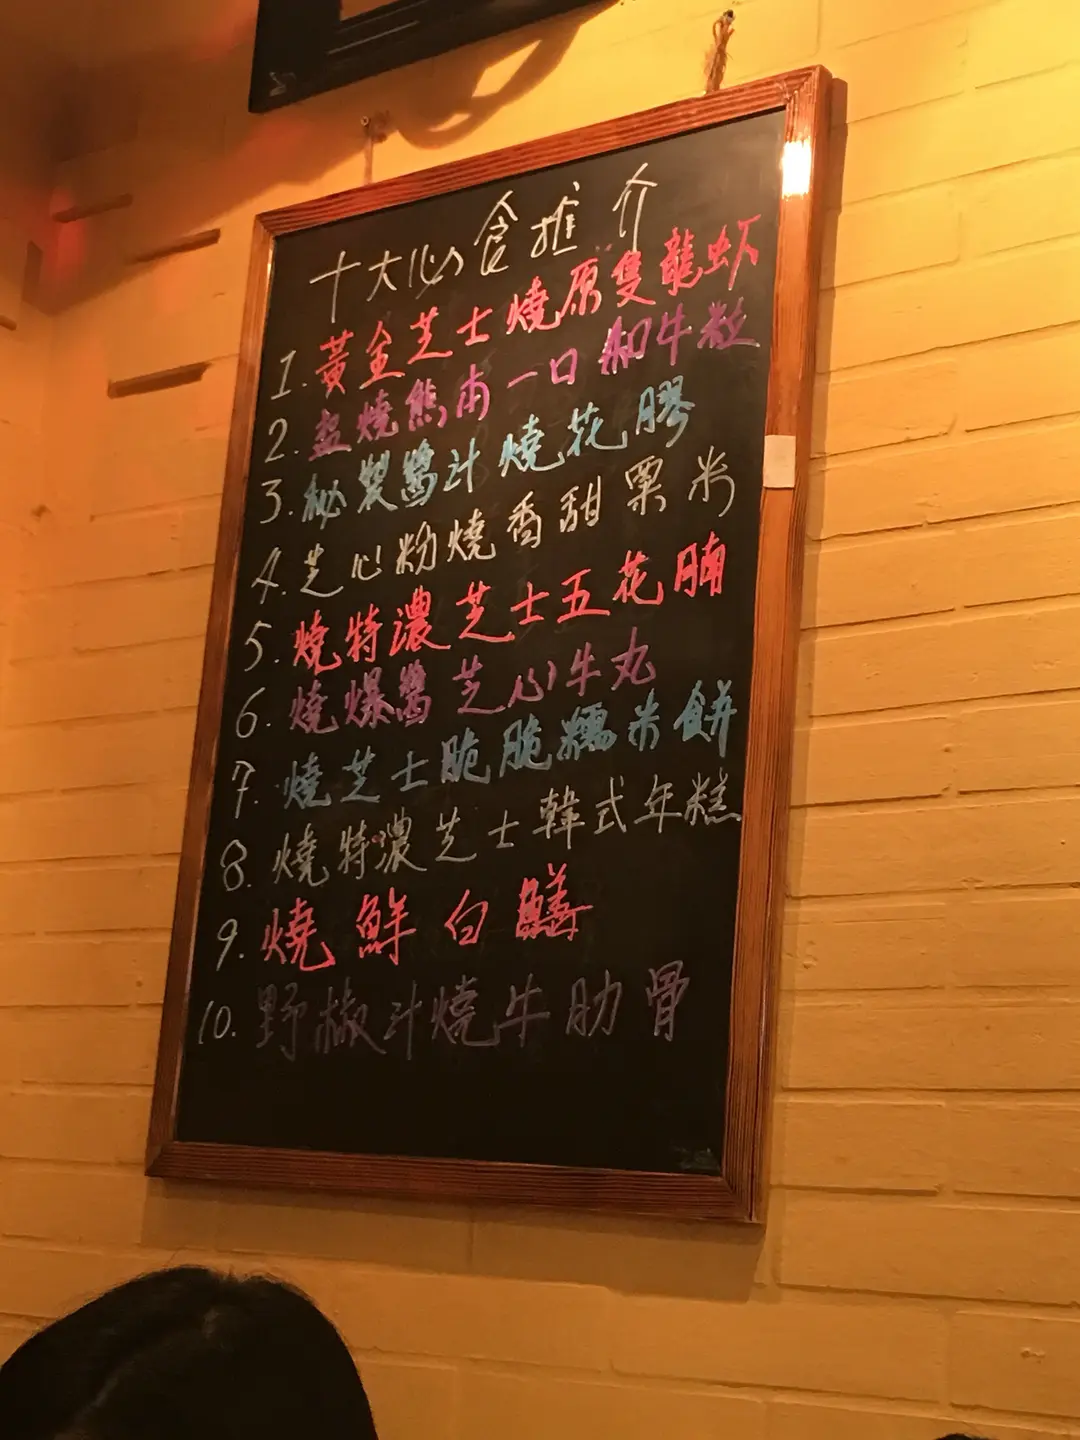 十大必食推介
1. 黃金芝士燒原隻龍虾
2. 盐燒熊本一口和牛粒
3. 秘製醬汁燒花膠
4. 芝心粉燒香甜粟米
5. 燒特濃芝士五花腩
6. 燒爆醬芝心牛丸
7. 燒芝士脆脆糯米餅
8. 燒特濃芝士韓式年糕
9. 燒鮮白鱔
10. 野椒汁燒牛肋骨